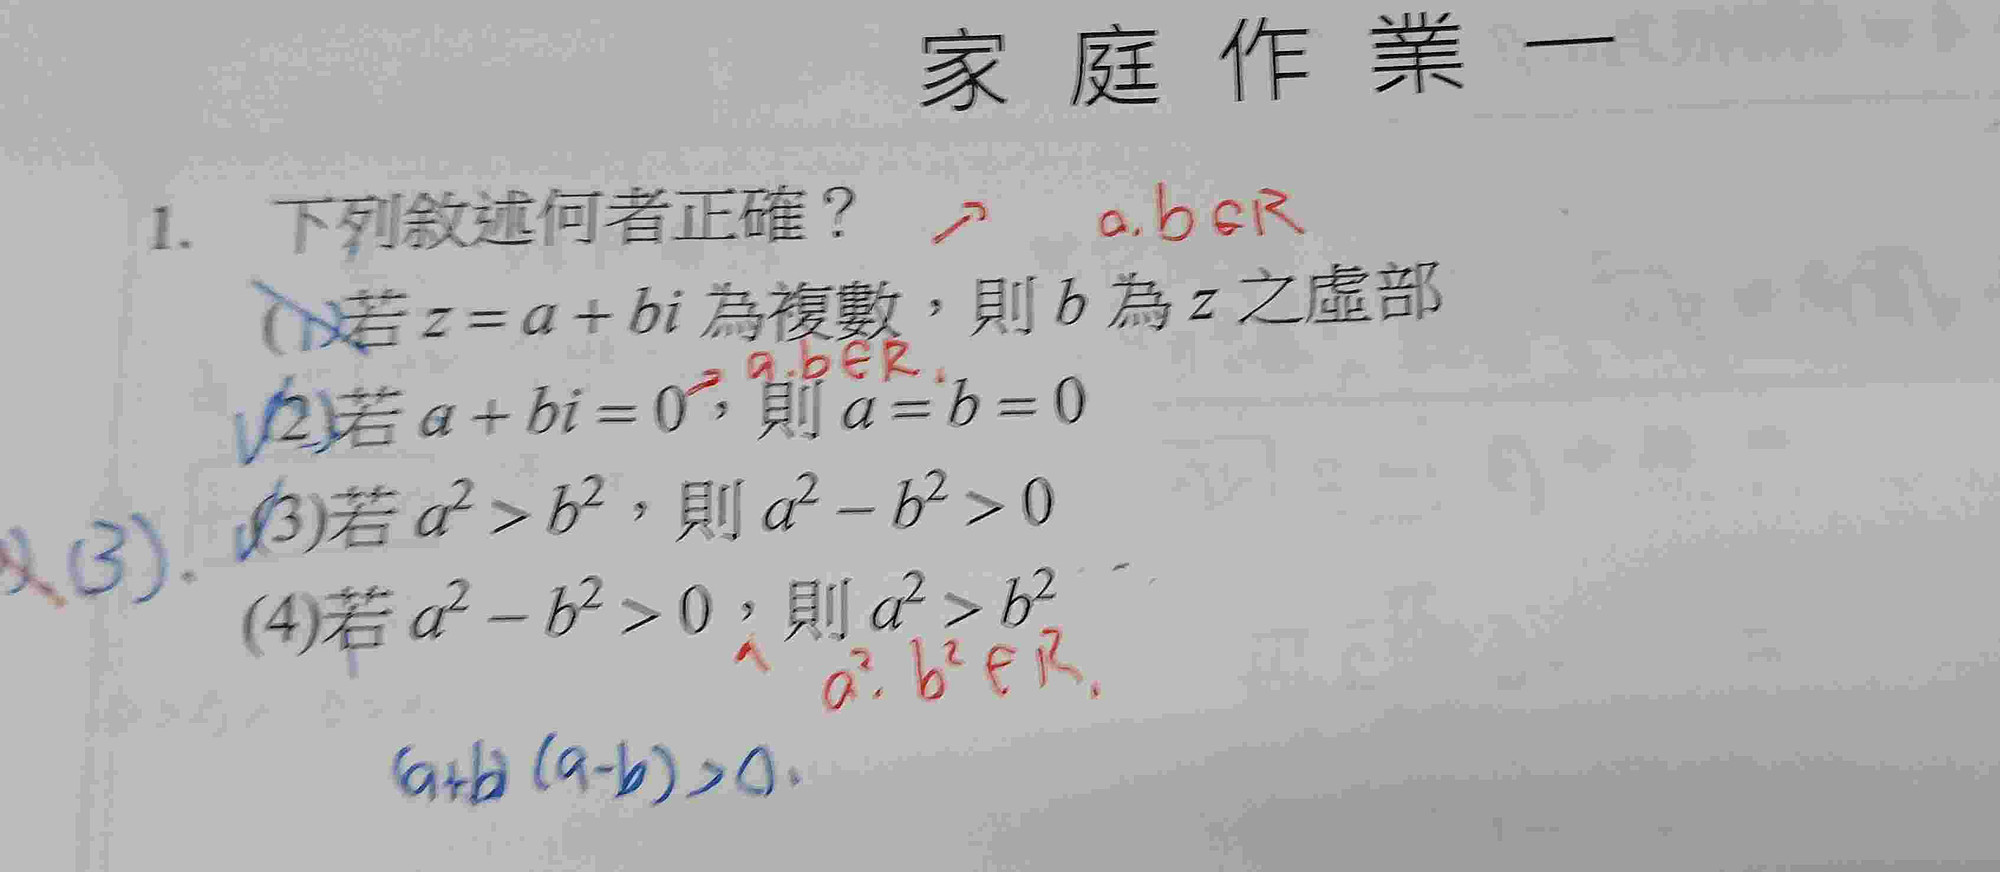 家庭作業一
1. 下列敘述何者正確？ ↗ a.b∈R
(1)若 z = a + bi 為複數，則 b 為 z 之虛部
a.b∈R.
(2)若 a + bi = 0，則 a = b = 0
(3)若 a² > b²，則 a² − b² > 0
(3).
(4)若 a² − b² > 0，則 a² > b²
a². b² ∈ R.
(a+b)(a-b)>0.